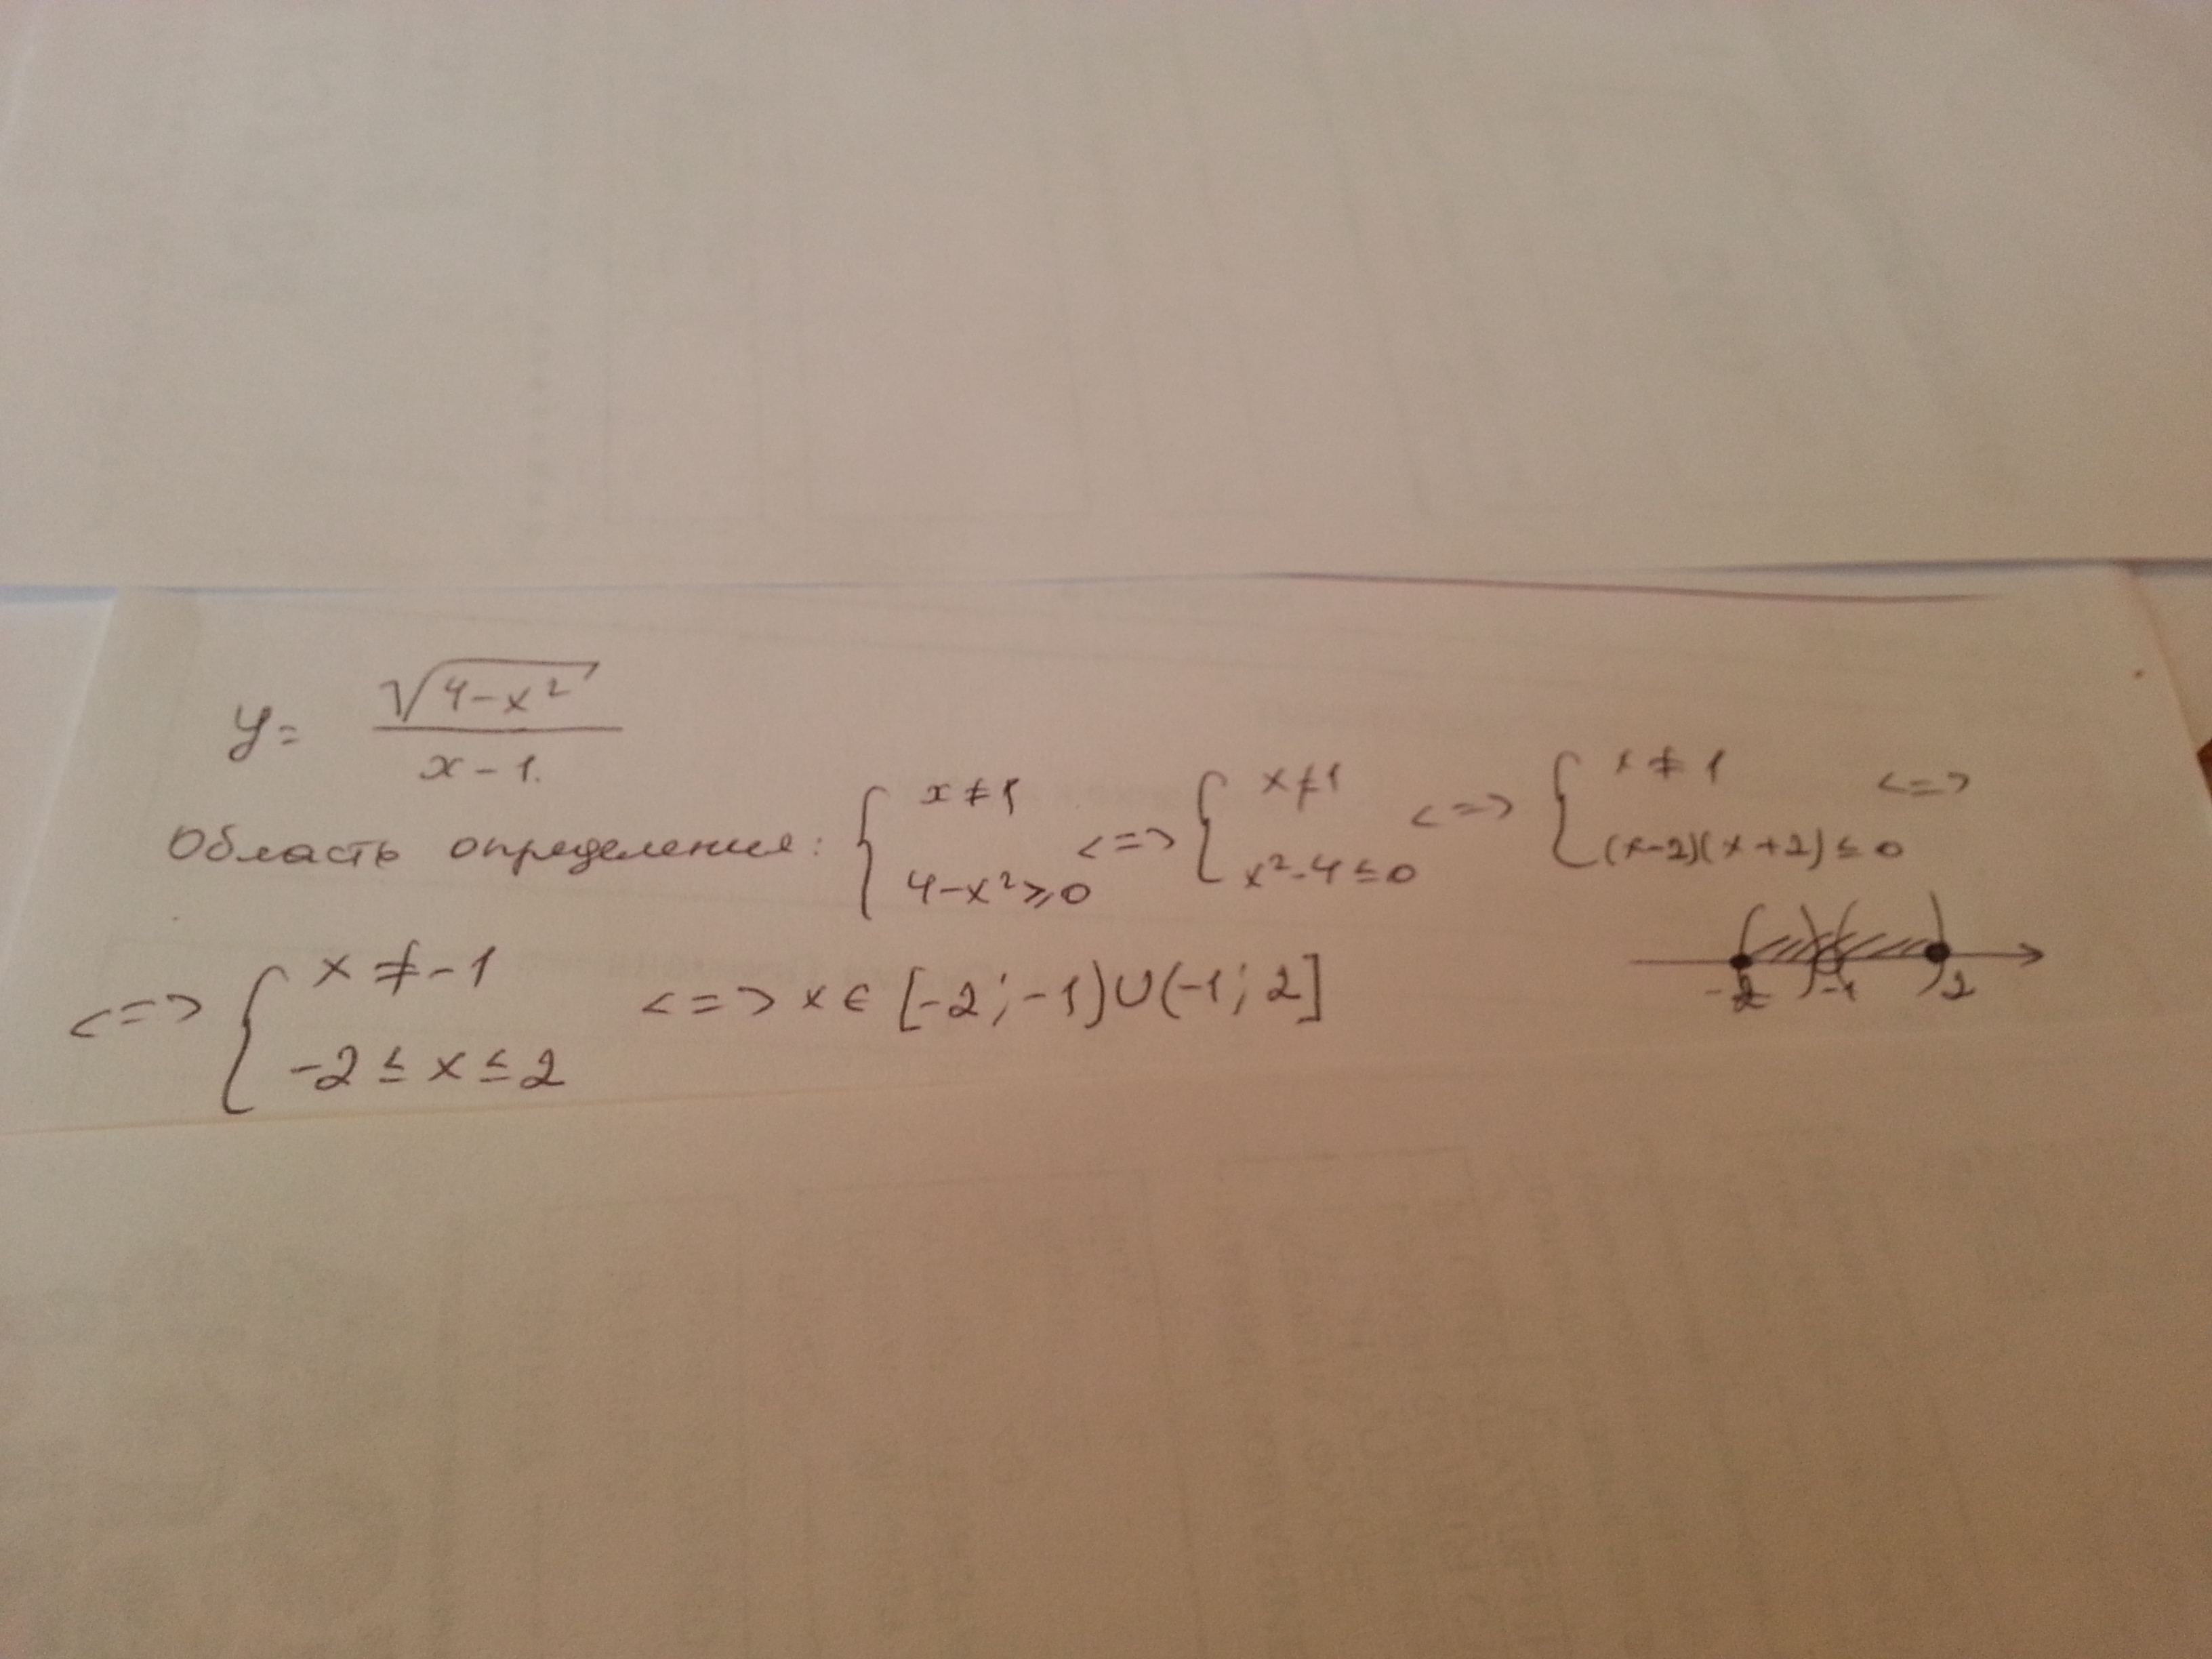 y = √(4-x²) / (x-1).
Область определения: { x ≠ 1 ; 4-x² ⩾ 0 <=> { x ≠ 1 ; x²-4 ≤ 0 <=> { x ≠ 1 ; (x-2)(x+2) ≤ 0 <=>
<=> { x ≠ -1 ; -2 ≤ x ≤ 2 <=> x ∈ [-2; -1) ∪ (-1; 2]
-2 -1 2